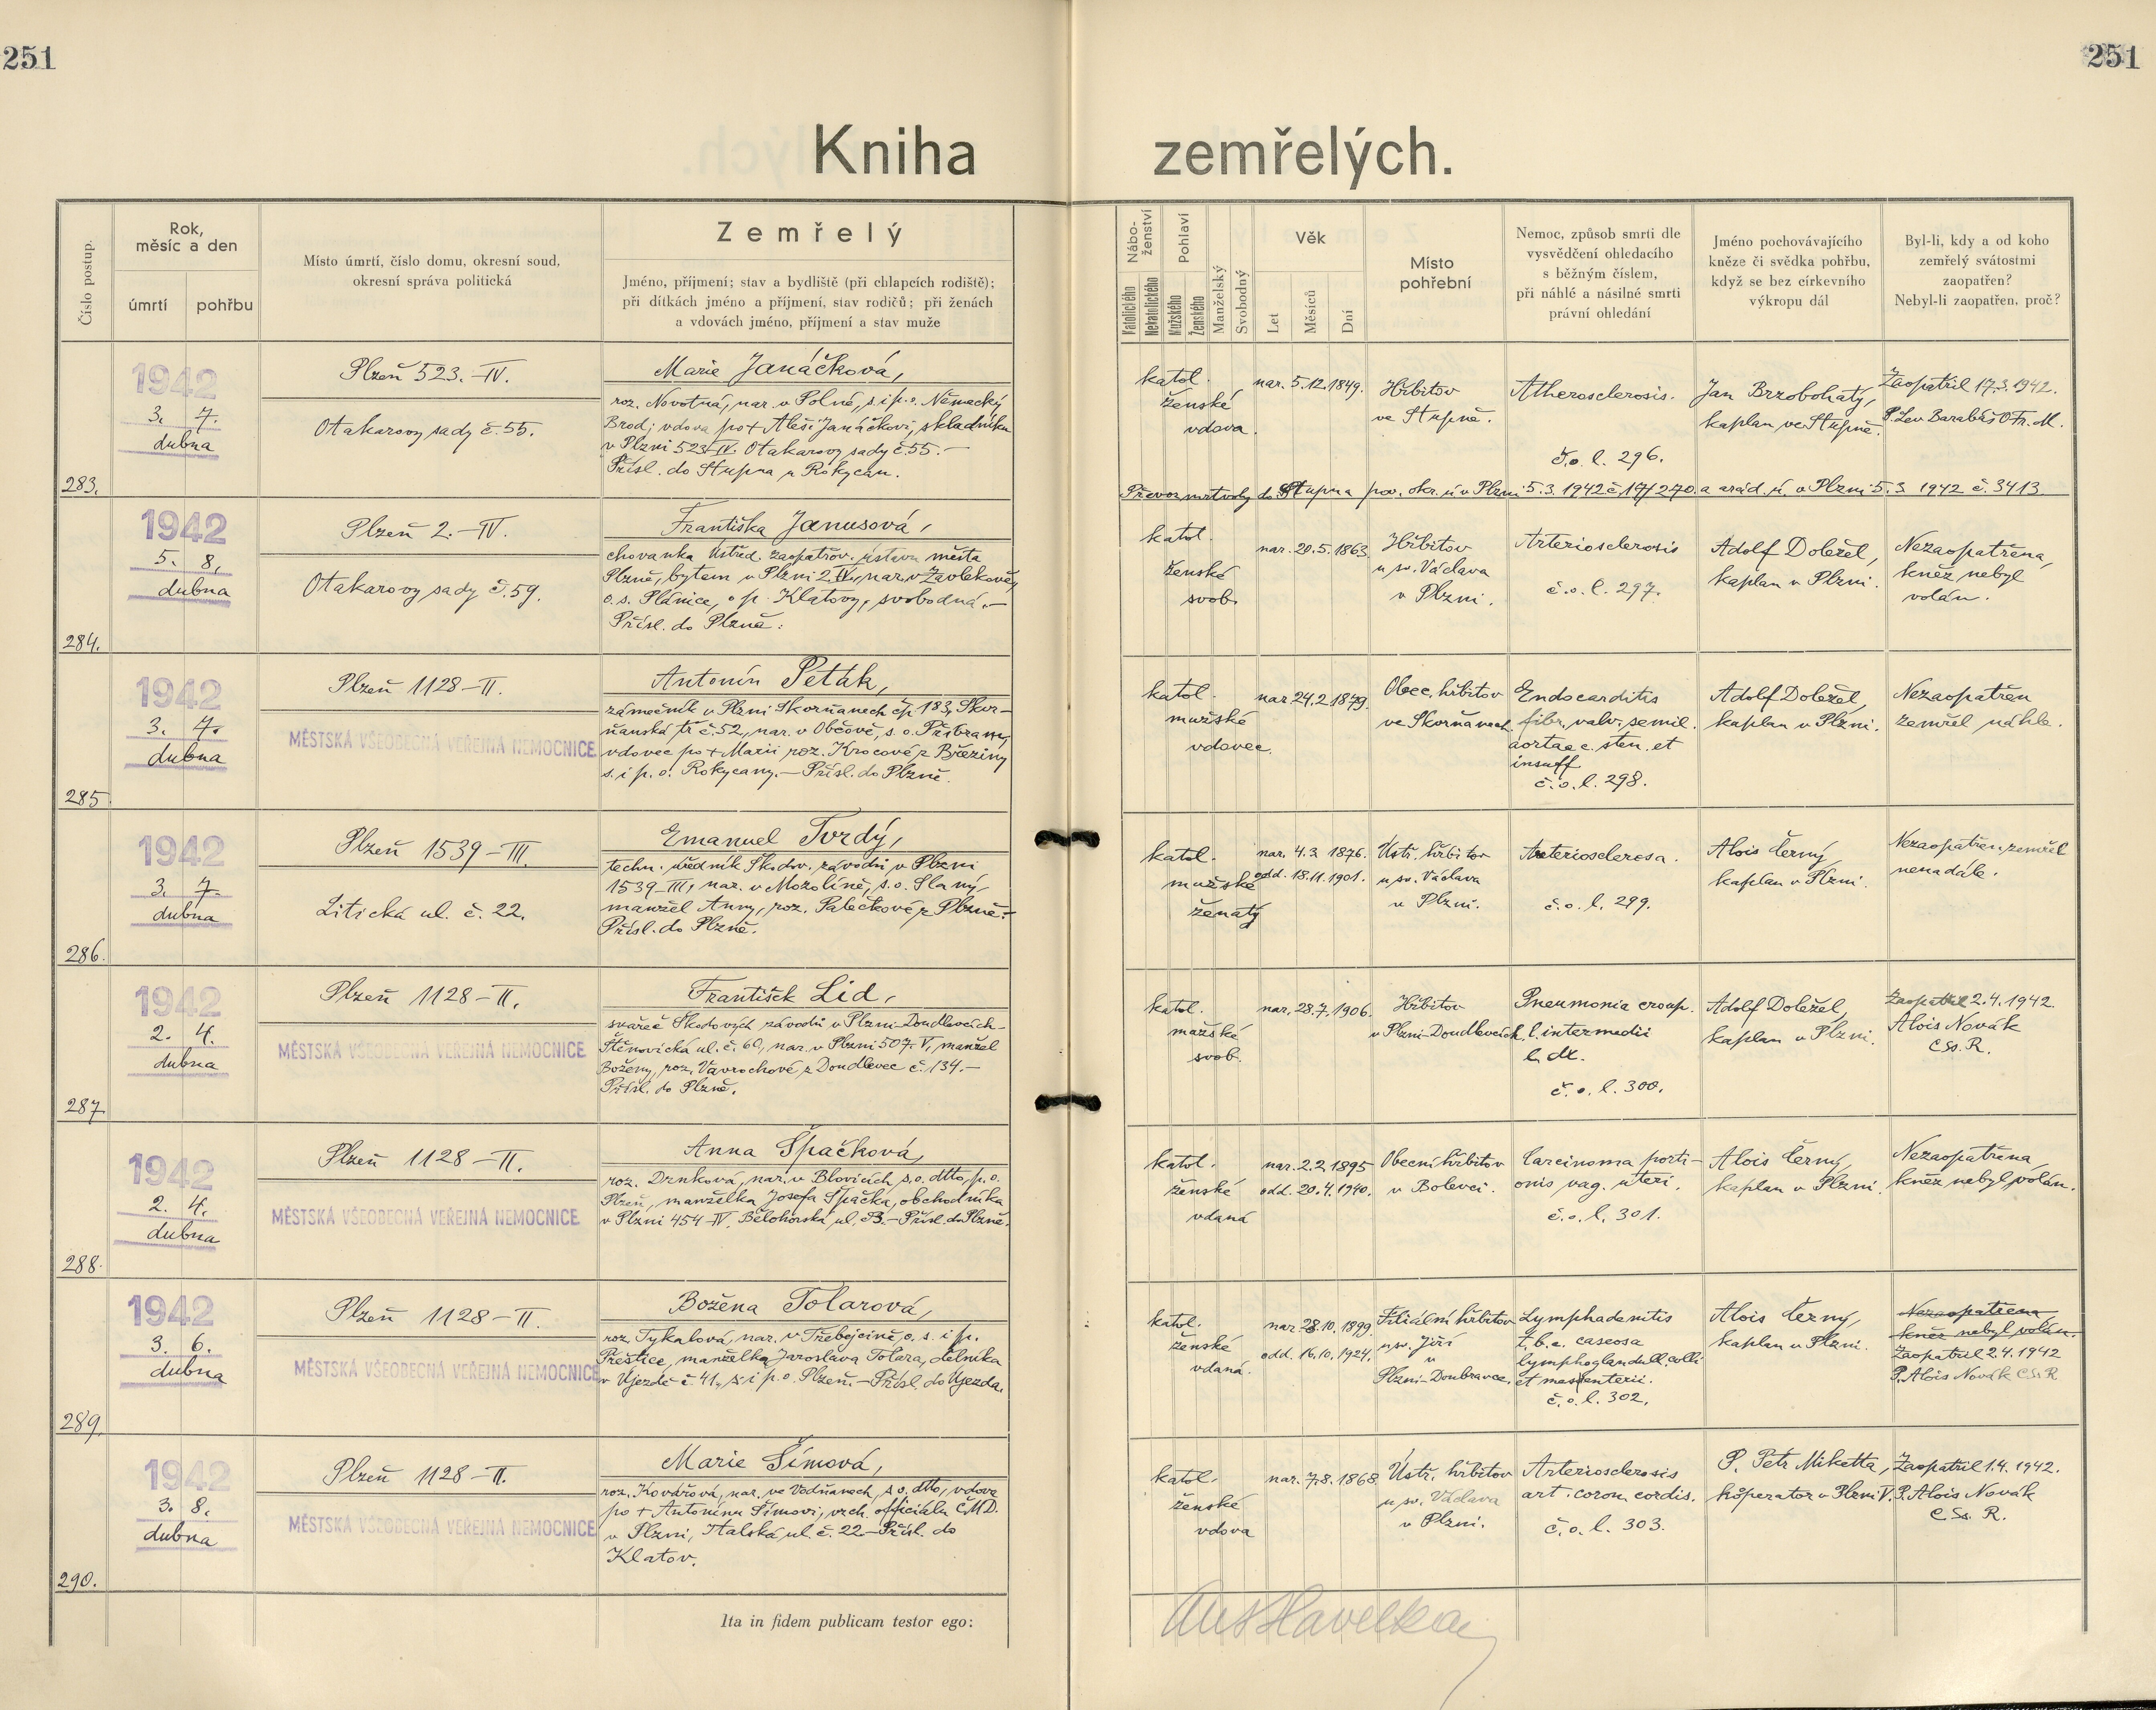 251
251
Kniha zemřelých.
Číslo postup.
Rok,
měsíc a den
úmrtí
pohřbu
Místo úmrtí, číslo domu, okresní soud,
okresní správa politická
Zemřelý
Jméno, příjmení; stav a bydliště (při chlapcích rodiště);
při dítkách jméno a příjmení, stav rodičů; při ženách
a vdovách jméno, příjmení a stav muže
Nábo-
ženství
Katolického
Nekatolického
Pohlaví
Mužského
Ženského
Manželský
Svobodný
Věk
Let
Měsíců
Dní
Místo
pohřební
Nemoc, způsob smrti dle
vysvědčení ohledacího
s běžným číslem,
při náhlé a násilné smrti
právní ohledání
Jméno pochovávajícího
kněze či svědka pohřbu,
když se bez církevního
výkropu dál
Byl-li, kdy a od koho
zemřelý svátostmi
zaopatřen?
Nebyl-li zaopatřen, proč?
283.
1942
3. 7.
dubna
Plzeň 523.-IV.
Otakarovy sady č. 55.
Marie Janáčková,
roz. Novotná, nar. v Polné, s. i p. o. Německý
Brod; vdova po + Aleši Janáčkovi, skladníku
v Plzni 523/IV. Otakarovy sady č. 55.-
Přísl. do Stupna u Rokycan.
katol.
ženské
vdova.
nar. 5.12.1849.
Hřbitov
ve Stupně.
Atherosclerosis.
č. o. l. 296.
Jan Brzobohatý,
kaplan ve Stupně.
Zaopatřil 17.3.1942.
P. Lev Barabáš O.Fr.M.
Převoz mrtvoly do Stupna pov. okr. ú. v Plzni 5.3.1942 č. 19/270. a úřad. ú. v Plzni 5.3.1942 č. 3413
284.
1942
5. 8.
dubna
Plzeň 2.-IV.
Otakarovy sady č. 59.
Františka Janusová,
chovanka Ústřed. zaopatřov. ústavu města
Plzně, bytem v Plzni 2.IV., nar. v Zavlekově,
o. s. Plánice, o. p. Klatovy, svobodná.-
Přísl. do Plzně.
katol.
ženské
svob.
nar. 20.5.1863.
Hřbitov
u sv. Václava
v Plzni.
Arteriosclerosis
č. o. l. 297.
Adolf Doležel,
kaplan v Plzni.
Nezaopatřena,
kněz nebyl
volán.
285
1942
3. 7.
dubna
Plzeň 1128-II.
MĚSTSKÁ VŠEOBECNÁ VEŘEJNÁ NEMOCNICE
Antonín Peták,
zámečník v Plzni Skvrňanech čp. 183, Skvr-
ňanská tř. č. 52, nar. v Občově, s. o. Příbram,
vdovec po + Marii roz. Krocové z Březiny
s. i p. o. Rokycany.- Přísl. do Plzně.
katol.
mužské
vdovec.
nar. 24.2.1879.
Obec. hřbitov
ve Skvrňanech.
Endocarditis
fibr. valv. semil.
aortae c. sten. et
insuff
č. o. l. 298.
Adolf Doležel,
kaplan v Plzni.
Nezaopatřen
zemřel náhle.
286.
1942
3. 7.
dubna
Plzeň 1539-III.
Litická ul. č. 22.
Emanuel Tvrdý,
techn. úředník Škodov. závodů v Plzni
1539-III, nar. v Mozolíně, s. o. Slaný,
manžel Anny, roz. Palečkové z Plzně.-
Přísl. do Plzně.
katol.
mužské
ženatý
nar. 4.3.1876.
odd. 18.11.1901.
Ústř. hřbitov
u sv. Václava
v Plzni.
Arteriosclerosa.
č. o. l. 299.
Alois Černý,
kaplan v Plzni.
Nezaopatřen, zemřel
nenadále.
287
1942
2. 4.
dubna
Plzeň 1128-II.
MĚSTSKÁ VŠEOBECNÁ VEŘEJNÁ NEMOCNICE
František Lid,
svářeč Škodových závodů v Plzni-Doudlevcích-
Štěnovická ul. č. 60, nar. v Plzni 507-V, manžel
Boženy, roz. Vavrochové z Doudlevec č. 134.-
Přísl. do Plzně.
katol.
mužské
svob.
nar. 28.7.1906.
Hřbitov
v Plzni-Doudlevcích.
Pneumonia croup.
l. intermedii
l. dx.
č. o. l. 300.
Adolf Doležel,
kaplan v Plzni.
Zaopatřil 2.4.1942.
Alois Novák
CSs.R.
288.
1942
2. 4.
dubna
Plzeň 1128-II.
MĚSTSKÁ VŠEOBECNÁ VEŘEJNÁ NEMOCNICE
Anna Špačková,
roz. Drnková, nar. v Blovicích s. o. dtto, p. o.
Plzeň, manželka Josefa Špačka, obchodníka
v Plzni 454-IV. Bělohorská ul. č. 3.- Přísl. do Plzně.
katol.
ženské
vdaná
nar. 2.2.1895
odd. 20.4.1940.
Obecní hřbitov
v Bolevci.
Carcinoma porti-
onis vag. uteri.
č. o. l. 301.
Alois Černý,
kaplan v Plzni.
Nezaopatřena,
kněz nebyl volán.
289.
1942
3. 6.
dubna
Plzeň 1128-II
MĚSTSKÁ VŠEOBECNÁ VEŘEJNÁ NEMOCNICE
Božena Tolarová,
roz. Tykalová, nar. v Třebejcině, o. s. i p.
Přeštice, manželka Jaroslava Tolara, dělníka
v Újezdě č. 41., s. i p. o. Plzeň.- Přísl. do Újezda.
katol.
ženské
vdaná.
nar. 28.10.1899.
odd. 16.10.1924.
Filiální hřbitov
u sv. Jiří
v
Plzni-Doubravce.
Lymphadenitis
t.b.c. caseosa
lymphoglandull. colli
et mesenterii.
č. o. l. 302.
Alois Černý,
kaplan v Plzni.
Nezaopatřena
kněz nebyl volán.
Zaopatřil 2.4.1942
P. Alois Novák CSs.R
290.
1942
3. 8.
dubna
Plzeň 1128-II.
MĚSTSKÁ VŠEOBECNÁ VEŘEJNÁ NEMOCNICE
Marie Šímová,
roz. Kovářová, nar. ve Vodňanech, s. o. dtto, vdova
po + Antonínu Šímovi, vrch. officiálu ČMD.
v Plzni, Italská ul. č. 22.- Přísl. do
Klatov.
katol.
ženské
vdova
nar. 7.8.1868
Ústř. hřbitov
u sv. Václava
v Plzni.
Arteriosclerosis
art. coron. cordis.
č. o. l. 303.
P. Petr Miketta,
kooperator v Plzni V.
Zaopatřil 1.4.1942.
P. Alois Novák
CSs.R.
Ita in fidem publicam testor ego:
Ant Havelka